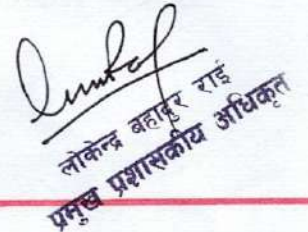 लोकेन्द्र बहादुर राई
प्रमुख प्रशासकीय अधिकृत